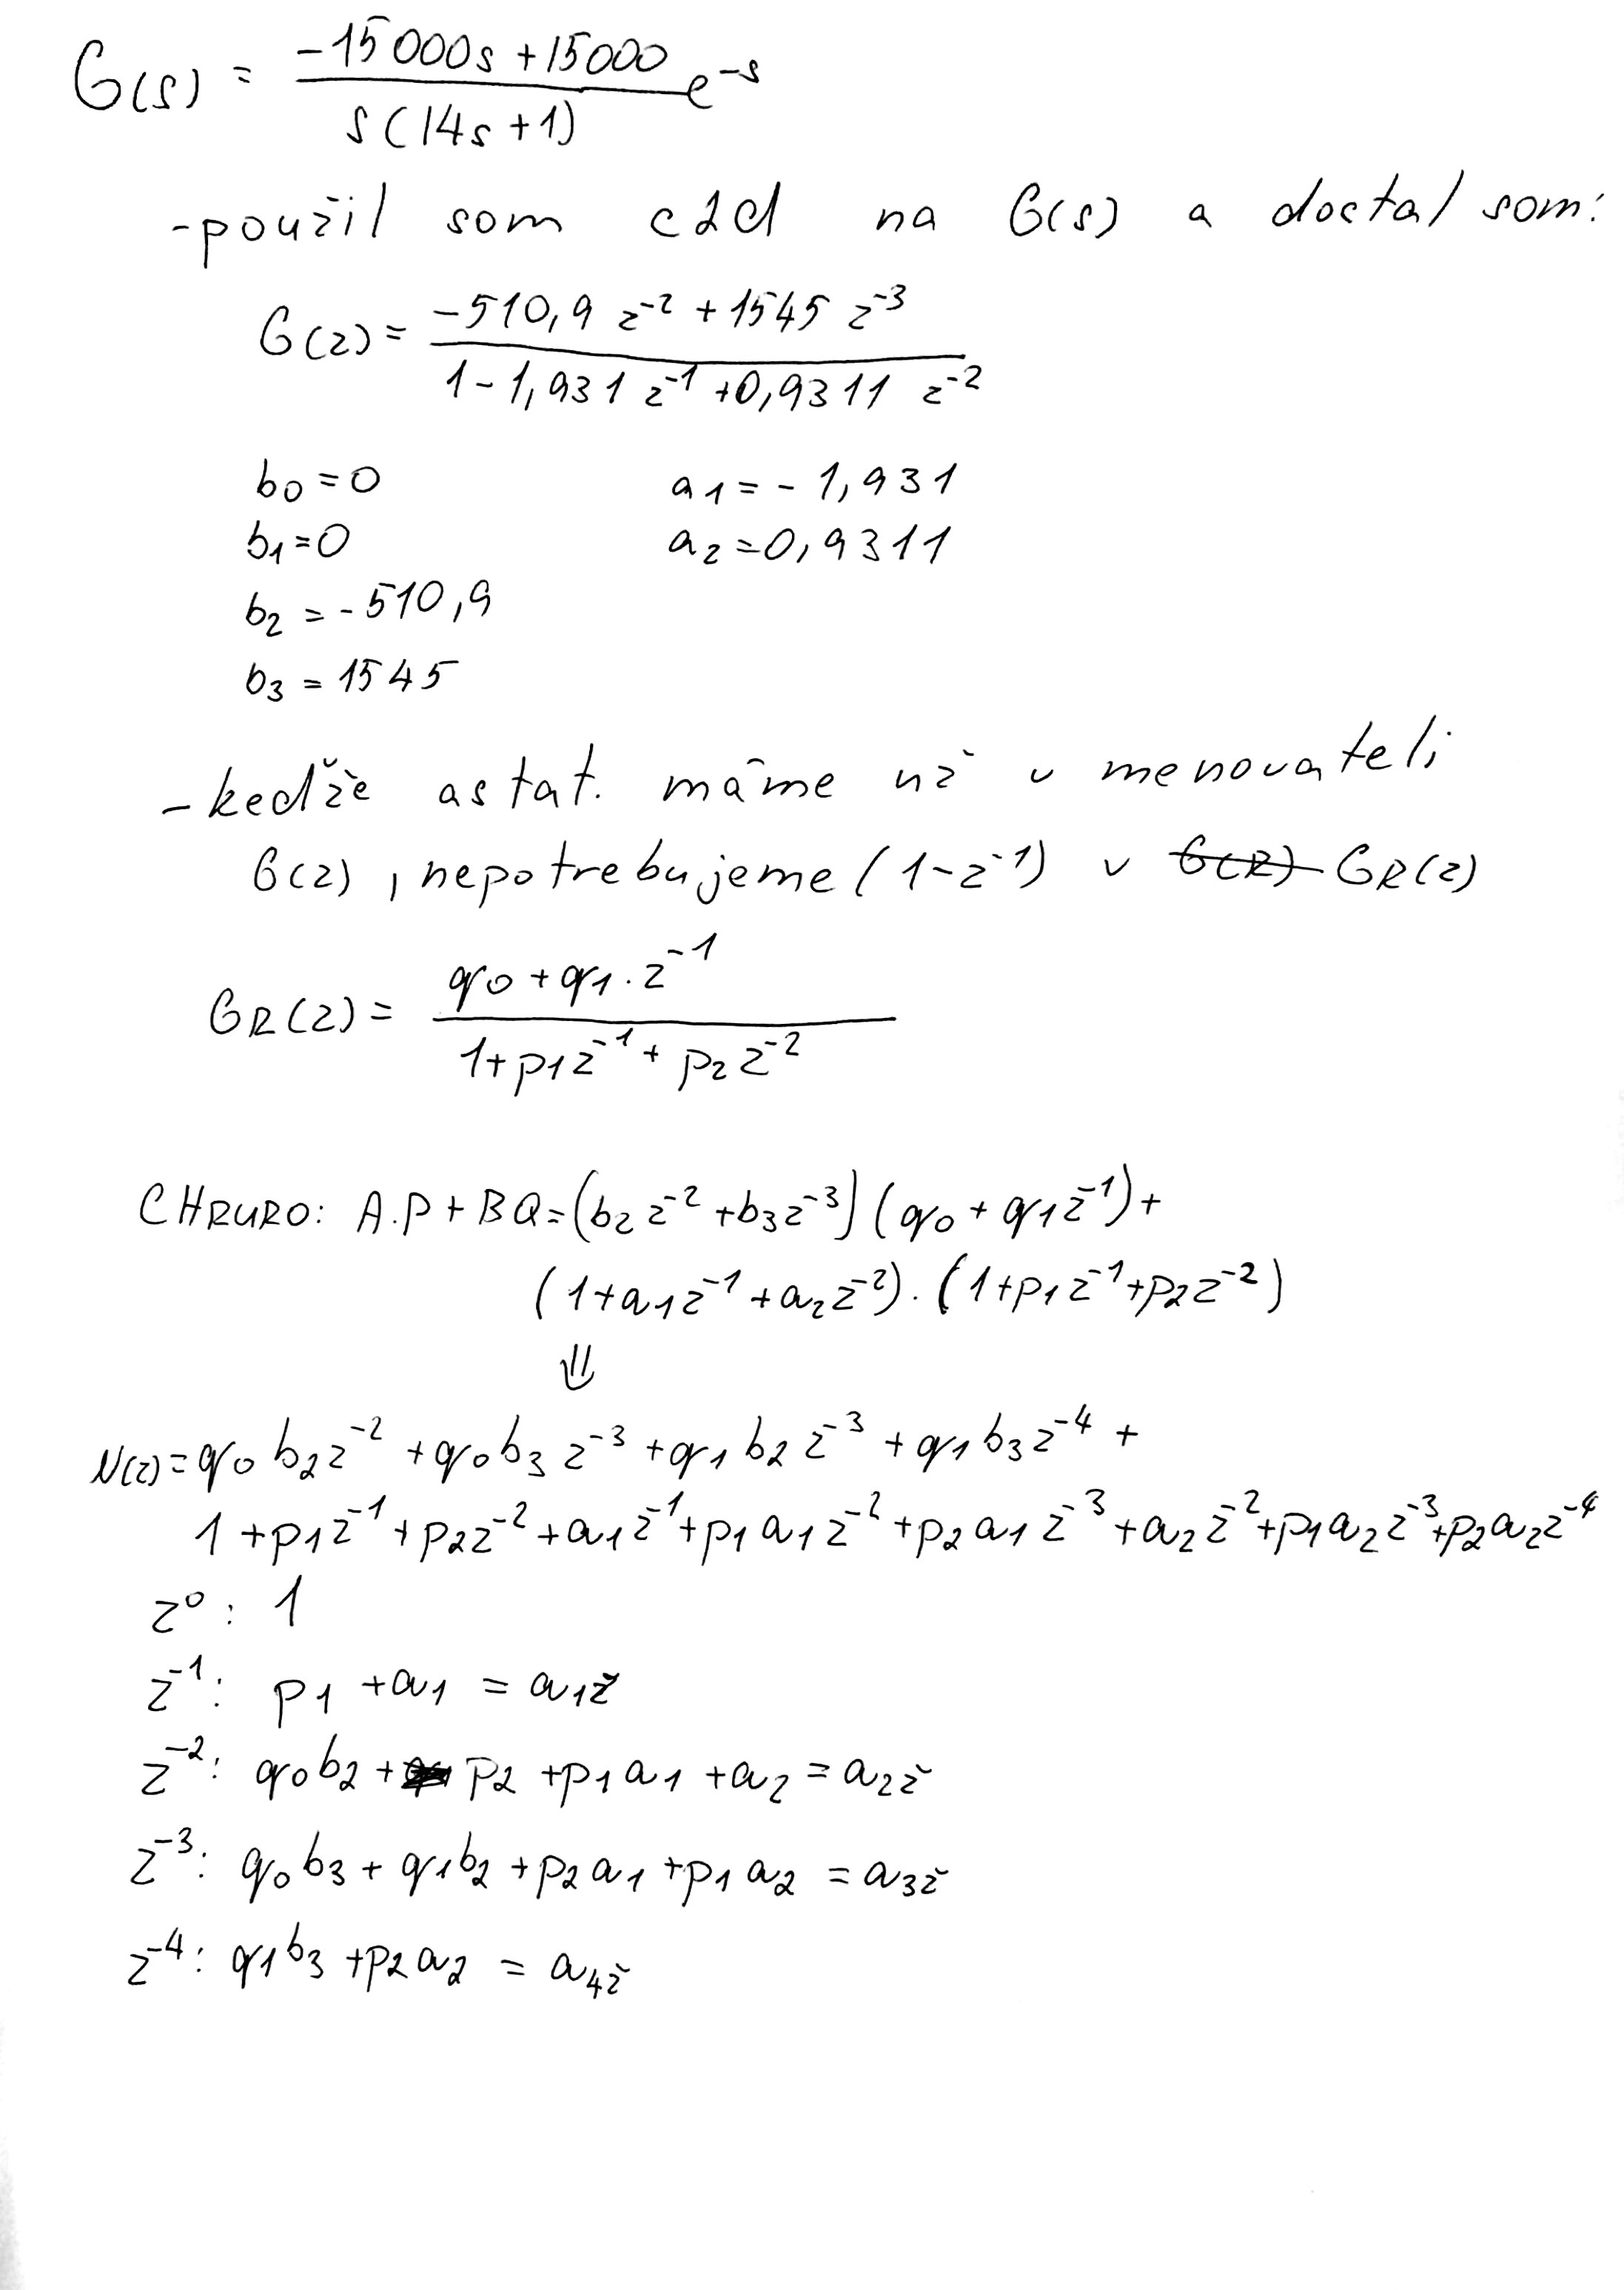 G(s) = (-15000s + 15000) / (s(14s + 1)) e^-s
- použil som c2d na G(s) a dostal som:
G(z) = (-510,9 z^-2 + 1545 z^-3) / (1 - 1,931 z^-1 + 0,9311 z^-2)
b0 = 0 a1 = - 1,931
b1 = 0 a2 = 0,9311
b2 = - 510,9
b3 = 1545
- kedže astat. máme už v menovateli
G(z), nepotrebujeme (1 - z^-1) v G(R) GR(z)
GR(z) = (q0 + q1 . z^-1) / (1 + p1 z^-1 + p2 z^-2)
CHRURO: A.P + BQ = (b2 z^-2 + b3 z^-3) (q0 + q1 z^-1) +
(1 + a1 z^-1 + a2 z^-2) . (1 + p1 z^-1 + p2 z^-2)
⇓
N(z) = q0 b2 z^-2 + q0 b3 z^-3 + q1 b2 z^-3 + q1 b3 z^-4 +
1 + p1 z^-1 + p2 z^-2 + a1 z^-1 + p1 a1 z^-2 + p2 a1 z^-3 + a2 z^-2 + p1 a2 z^-3 + p2 a2 z^-4
z^0 : 1
z^-1 : p1 + a1 = a1ž
z^-2 : q0 b2 + p2 + p1 a1 + a2 = a2ž
z^-3 : q0 b3 + q1 b2 + p2 a1 + p1 a2 = a3ž
z^-4 : q1 b3 + p2 a2 = a4ž